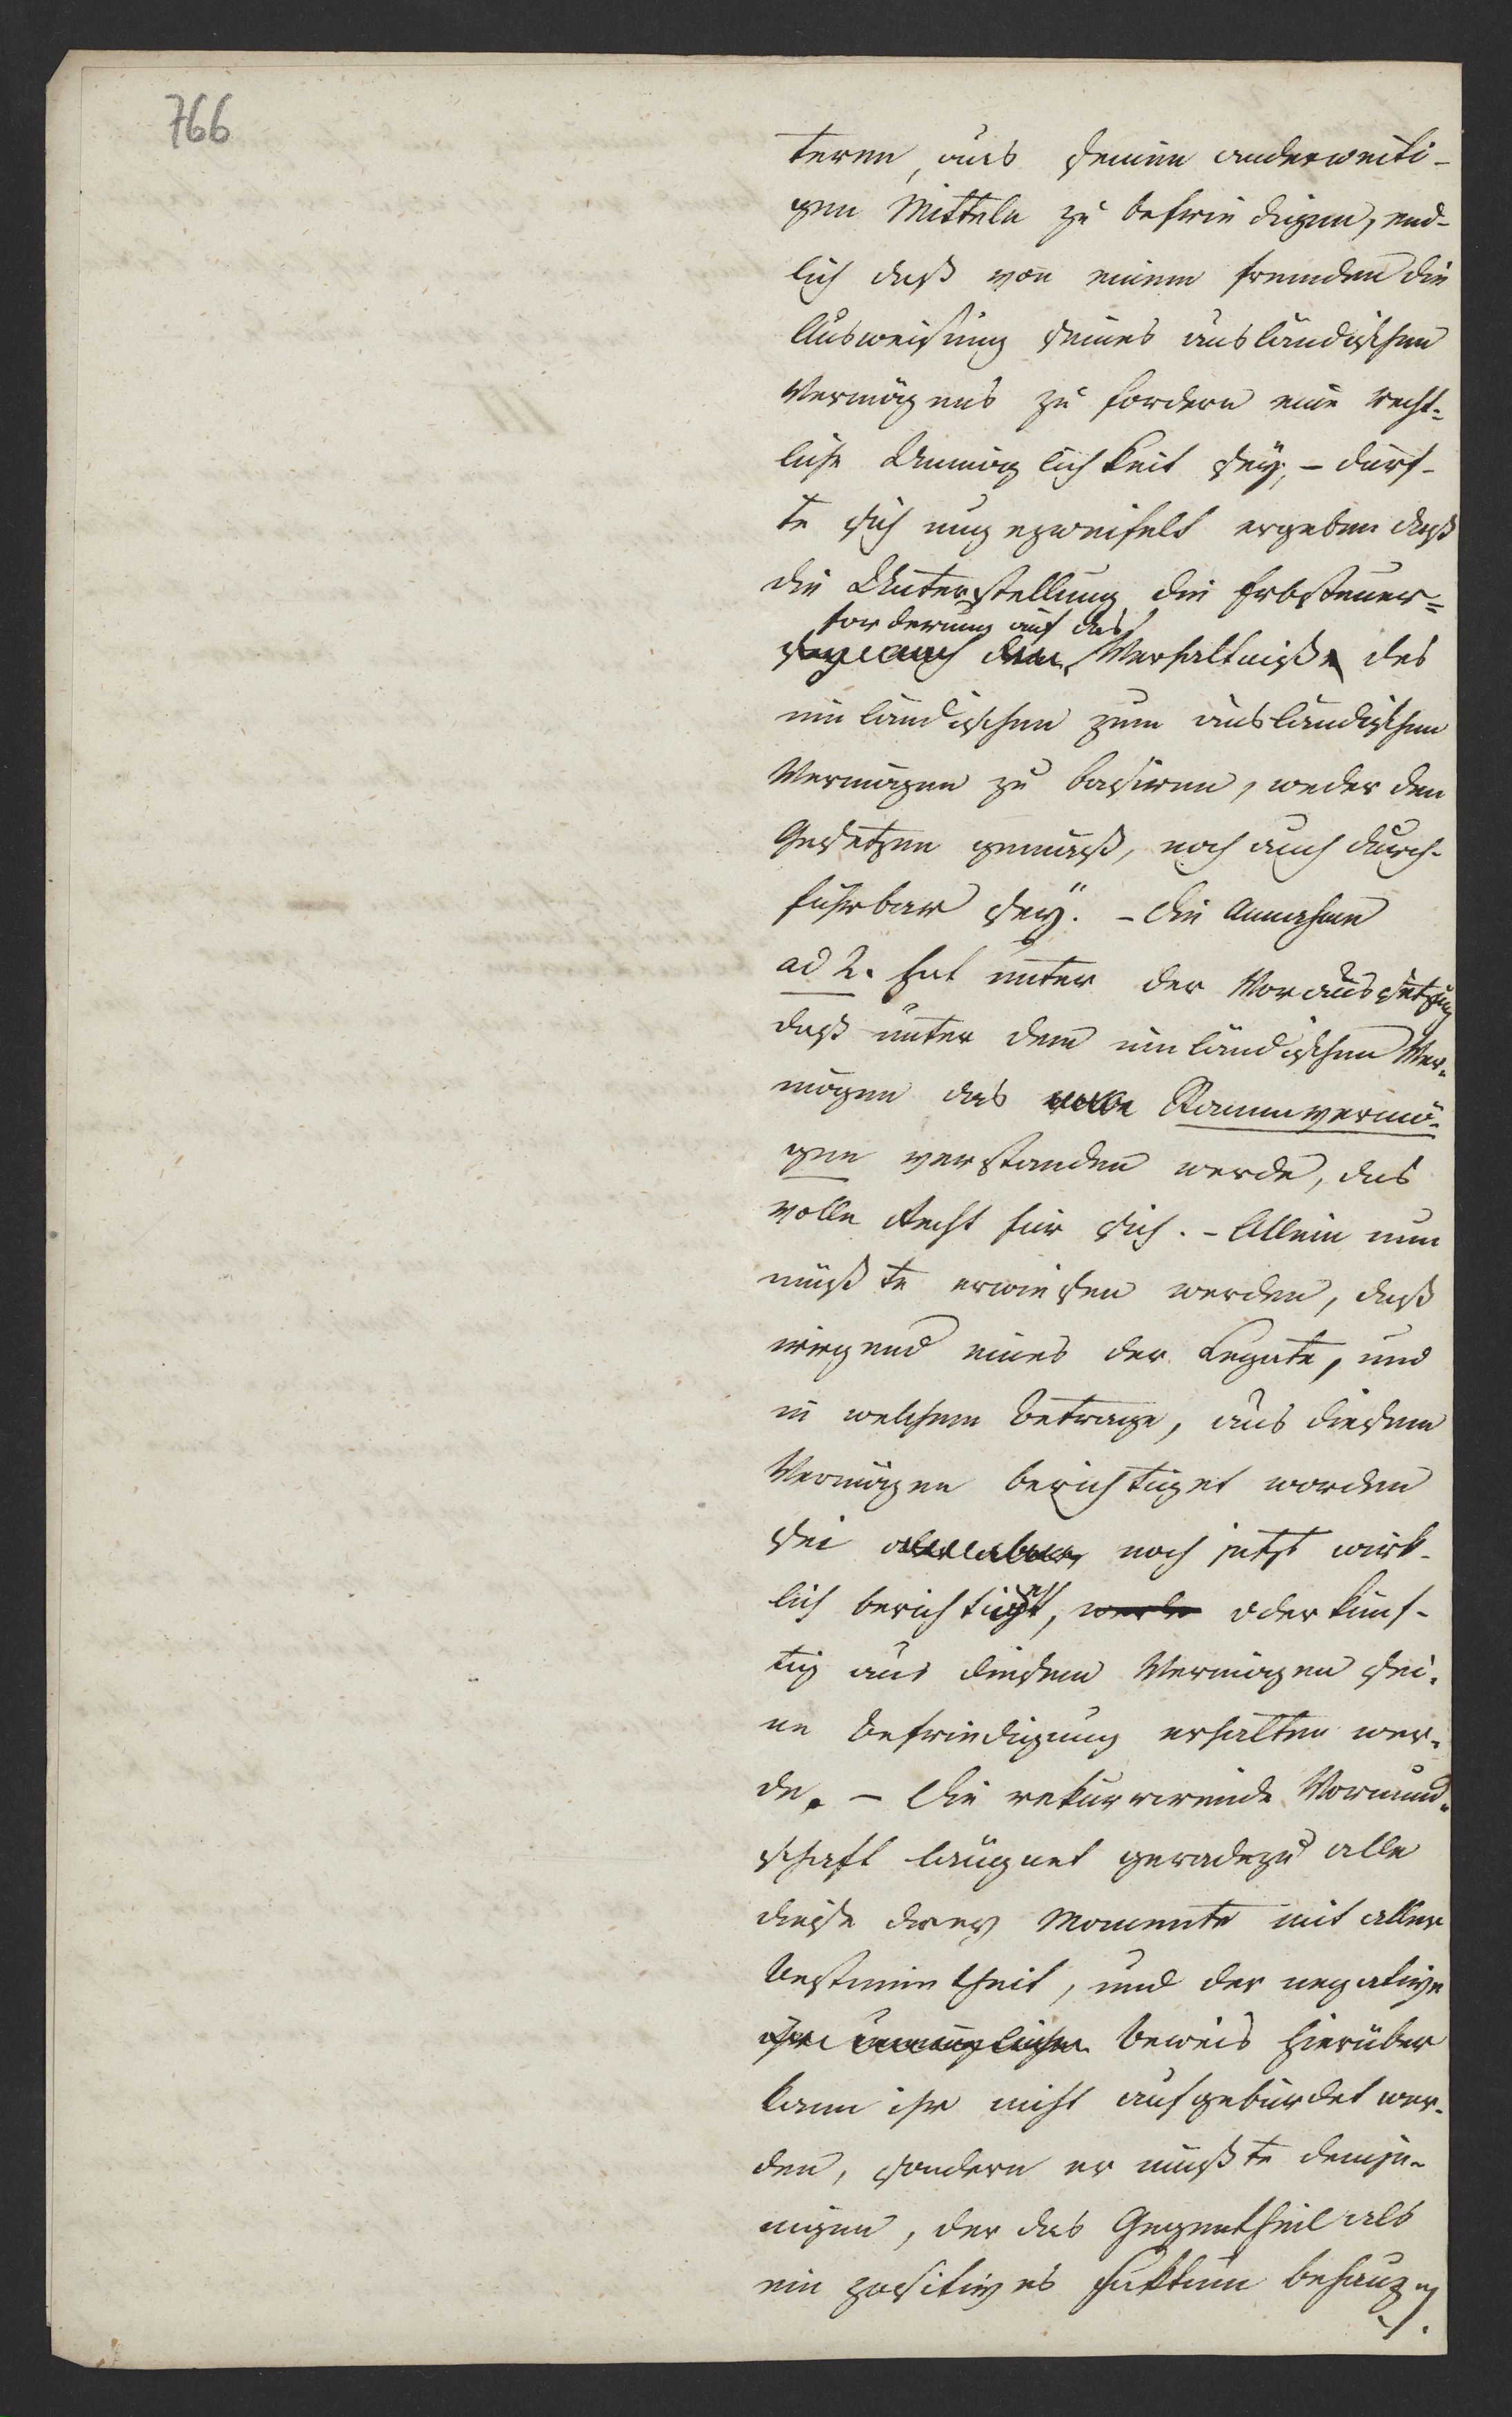 766
teren, aus seinen anderweiti-
gen Mitteln zu befriedigen, end-
lich daß von einem Fremden die
Ausweisung seines ausländischen
Vermögens zu fordern eine recht-
liche Unmöglichkeit sey; - dürf-
te sich ungezweifelt ergeben daß
die Unterstellung die Erbsteuer=
forderung auf das
Verhältniß des
inländischen zum ausländischen
Vermögen zu basiren, weder den
Gesetzen gemäß, noch auch durch-
führbar sey. - Die Annahme
ad 2. hat unter der Voraussetzung
daß unter dem inländischen Ver-
mögen das Stammvermö-
gen verstanden werde, das
volle Recht für sich. - Allein nun
müßte erwiesen werden, daß
irgend eines der Legate, und
in welchem Betrage, aus diesem
Vermögen berichtiget worden
sei noch jetzt wirk-
lich berichtiget, werde oder künf-
tig aus diesem Vermögen sei-
ne Befriedigung erhalten wer-
de. - Die rekurrirende Vormund-
schaft läugnet geradezu alle
diese drey Momente mit aller
Bestimmtheit, und der negative
unmöglichen Beweis hierüber
kann ihr nicht aufgebürdet wer-
den, sondern er müßte demje-
nigen, der das Gegentheil als
ein positives Faktum behaup-
./.